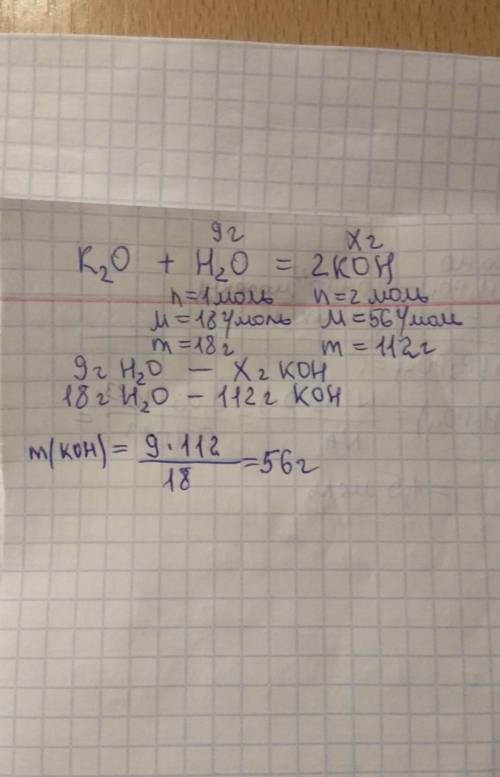 9г Xг
K₂O + H₂O = 2KOH
n=1моль n=2 моль
M=18г/моль M=56г/моль
m=18г m=112г
9г H₂O — Xг KOH
18г H₂O – 112г KOH
m(KOH)= 9·112/18 =56г